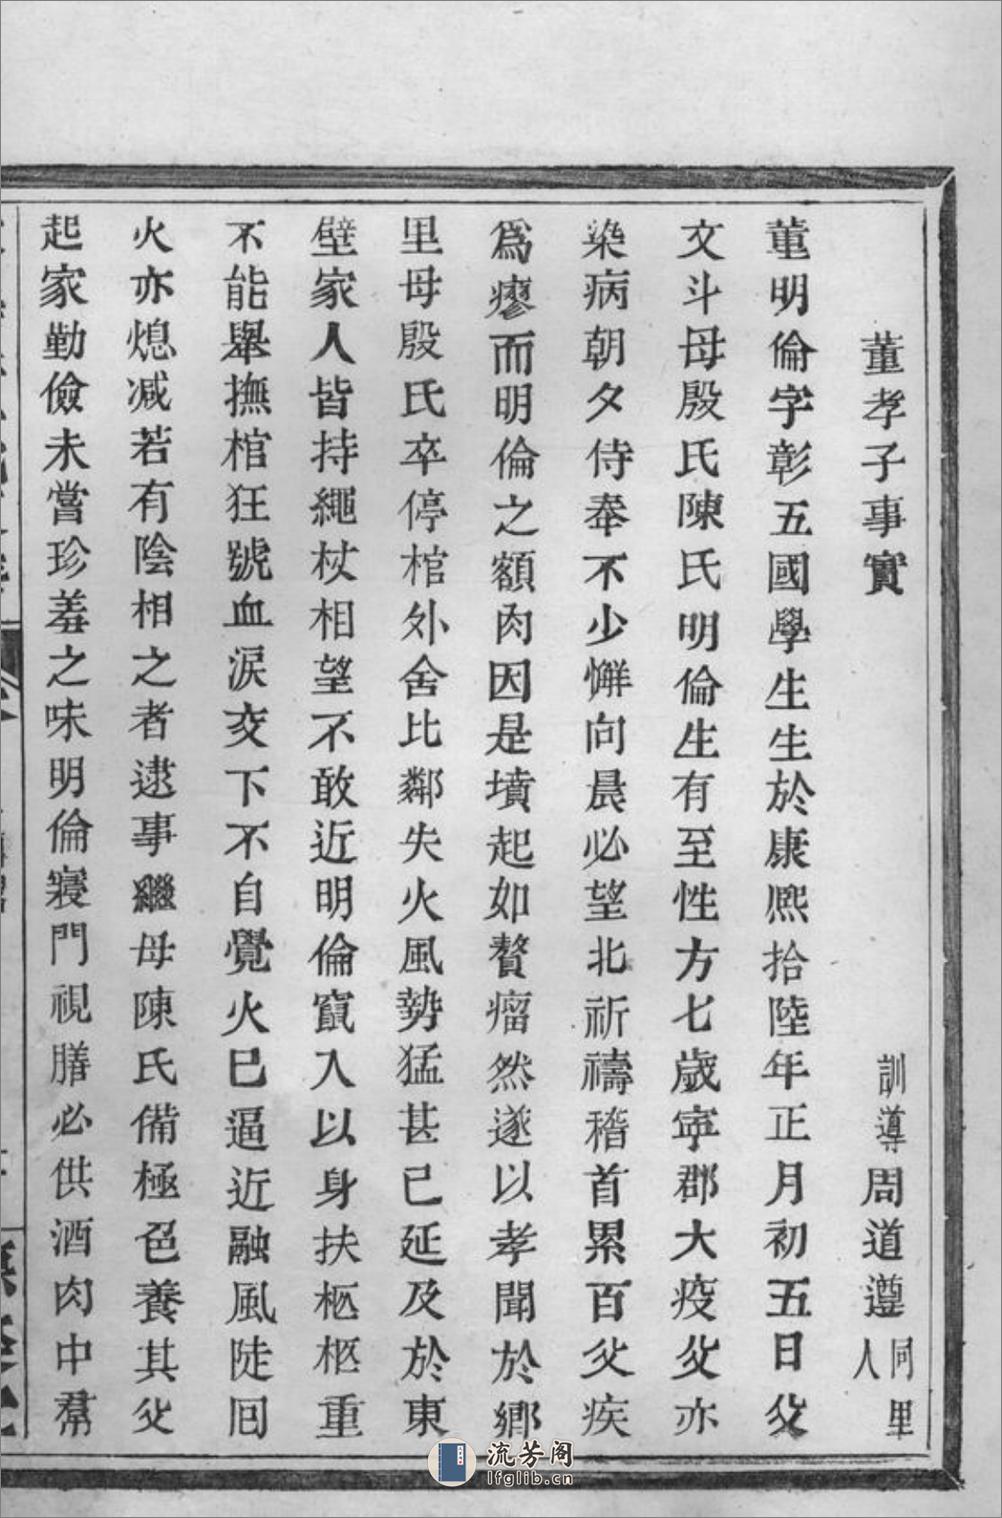 董孝子事實 訓導周道遵同里人
董明倫字彰五國學生生於康熙拾陸年正月初五日父
文斗母殷氏陳氏明倫生有至性方七歲寧郡大疫父亦
染病朝夕侍奉不少懈向晨必望北祈禱稽首累百父疾
爲瘳而明倫之額肉因是墳起如贅瘤然遂以孝聞於鄉
里母殷氏卒停棺外舍比鄰失火風勢猛甚已延及於東
壁家人皆持繩杖相望不敢近明倫竄入以身扶柩柩重
不能舉撫棺狂號血淚交下不自覺火已逼近融風陡回
火亦熄減若有陰相之者逮事繼母陳氏備極色養其父
起家勤儉未嘗珍羞之味明倫寢門視膳必供酒肉中羣
流芳阁
lfglib.cn